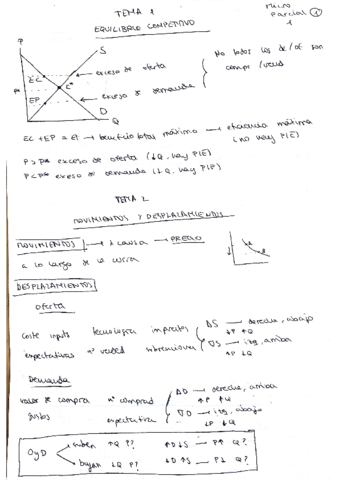 TEMA 1
Micro
Parcial 1
1
EQUILIBRIO COMPETITIVO
P
S
EC
exceso de oferta
No todos los de/of son
P*
E*
EP
exceso de demanda
D
Q
EC + EP = ET → beneficio total máximo → eficiencia máxima
(no hay PIE)
P > P* exceso de oferta (↓Q, hay PIE)
P < P* exceso de demanda (↓Q, hay PIE)
TEMA 2
MOVIMIENTOS Y DESPLAZAMIENTOS
MOVIMIENTOS → 1 causa → PRECIO
a lo largo de la curva
DESPLAZAMIENTOS
Oferta
coste inputs tecnología impuestos
expectativas nº vended subvenciones
ΔS → derecha, abajo
↓P ↑Q
∇S → izq, arriba
↑P ↓Q
Demanda
poder de compra nº comprad
gustos expectativa
ΔD → derecha, arriba
↑P ↑Q
∇D → izq, abajo
↓P ↓Q
O y D
suben ↑Q P? ↑D ↓S → P↑ Q?
bajan ↓Q P? ↓D ↑S → P↓ Q?